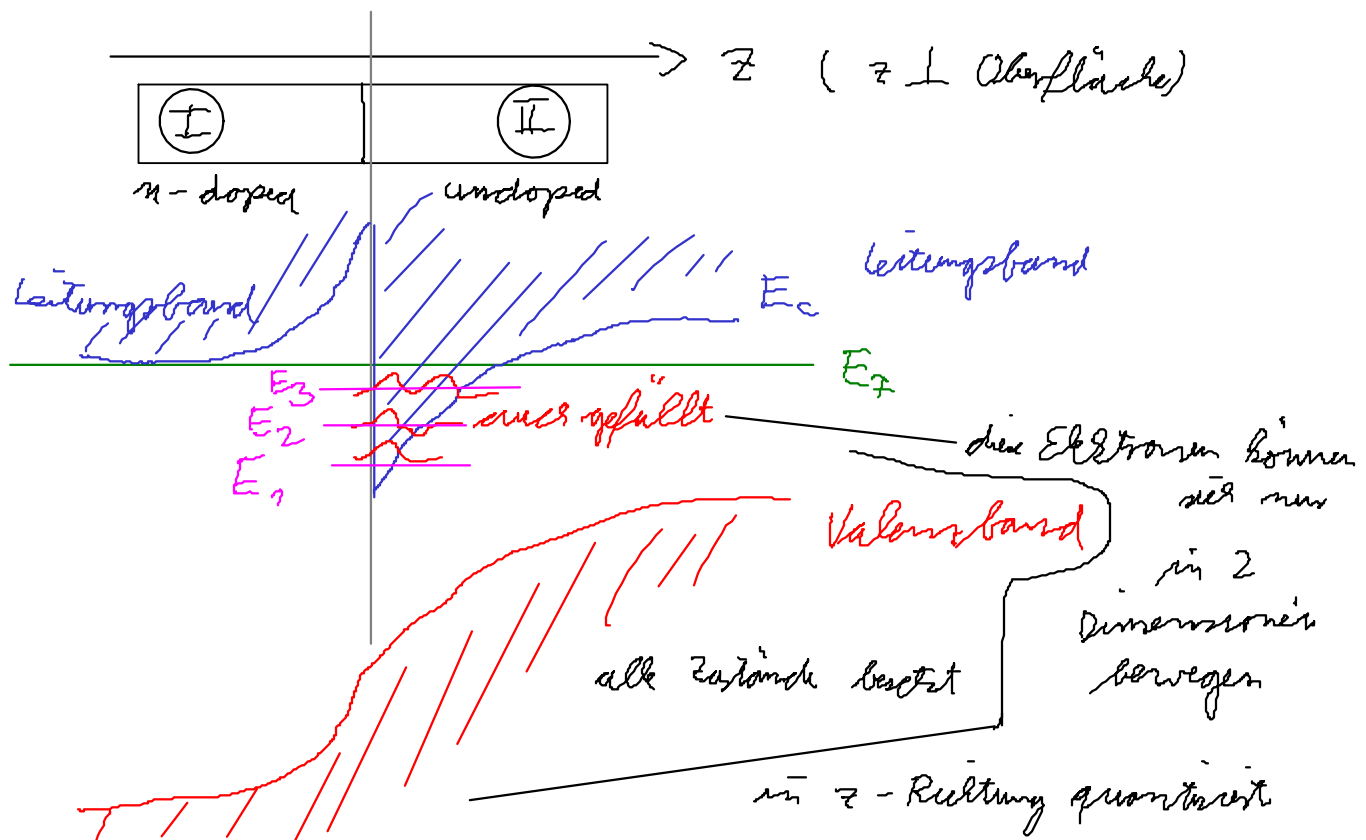 z ( z ⊥ Oberfläche)
I II
n-doped undoped
Leitungsband
Leitungsband
E_c
E_F
E_3
E_2
E_1
auch gefüllt
diese Elektronen können
sich nur
in 2
Dimensionen
bewegen
Valenzband
alle Zustände besetzt
in z-Richtung quantisiert